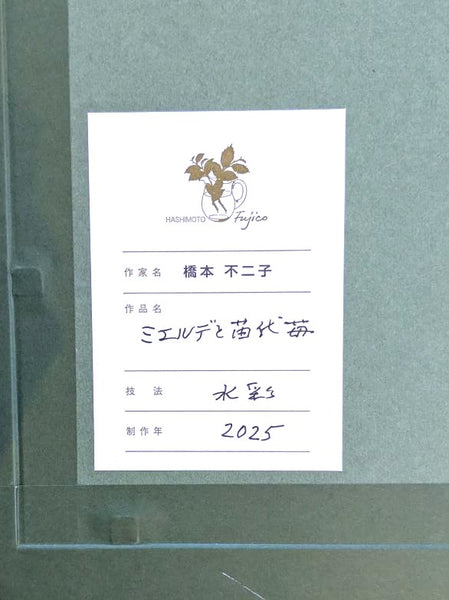 HASHIMOTO Fujico
作家名 橋本 不二子
作品名
ミエルデと苗代苺
技 法 水彩
制作年 2025